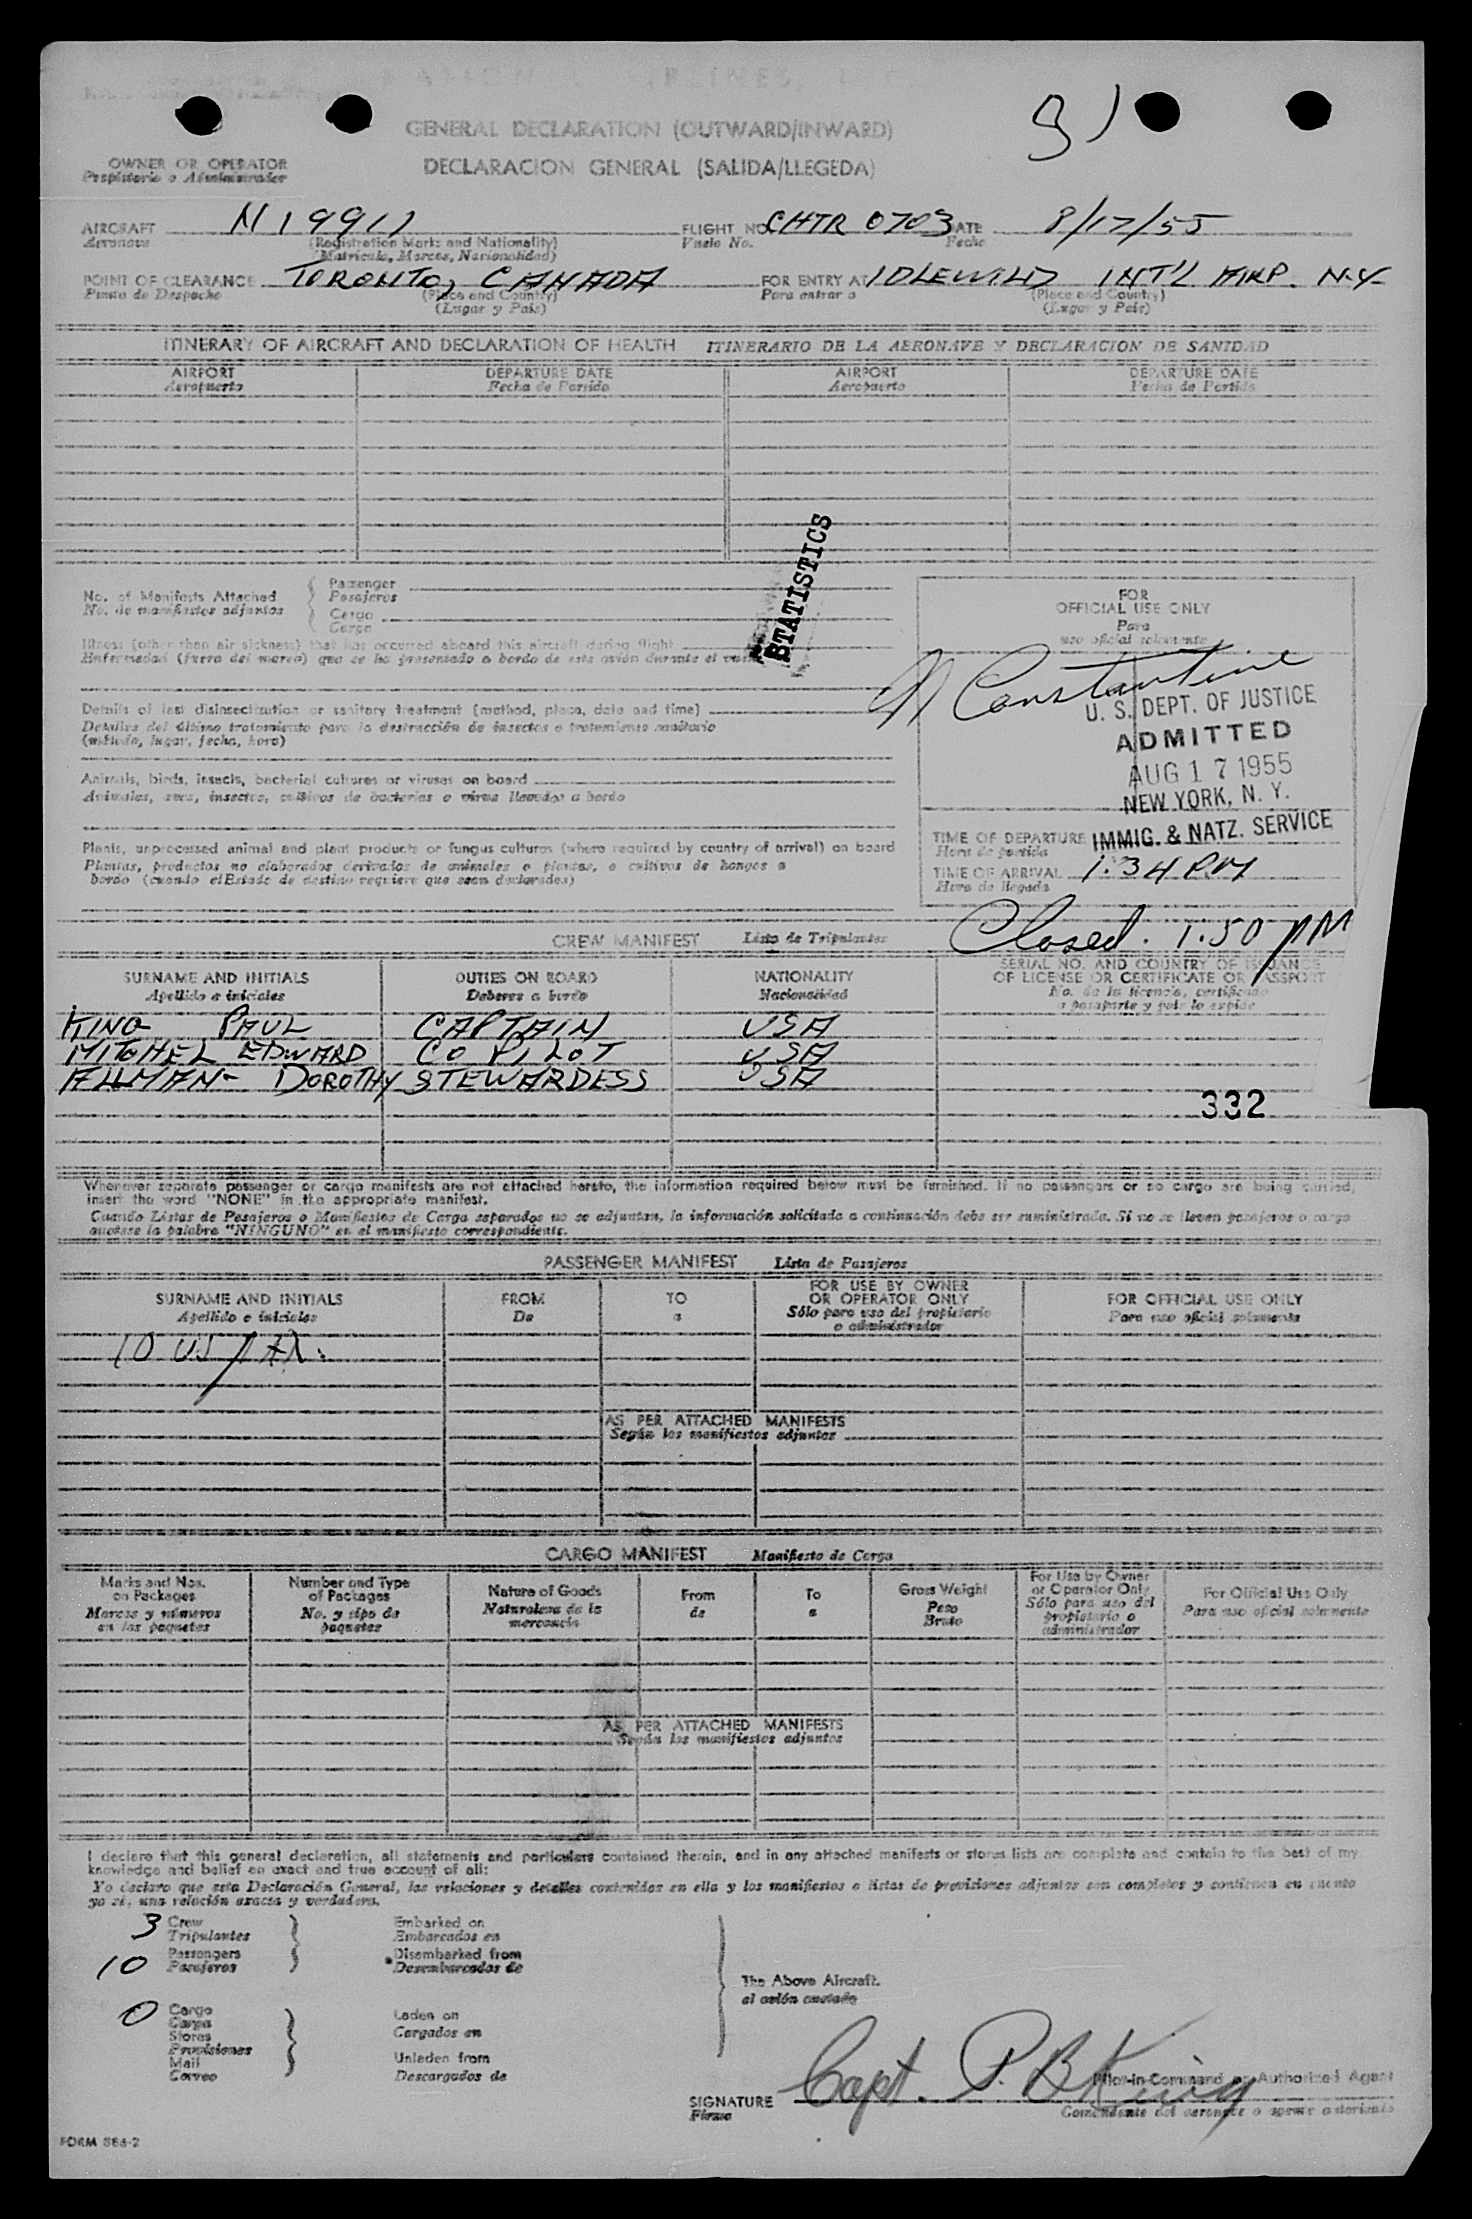 GENERAL DECLARATION (OUTWARD/INWARD)
91
DECLARACION GENERAL (SALIDA/LLEGEDA)
OWNER OR OPERATOR
Propietario o Administrador
AIRCRAFT N19911 FLIGHT NO. CHTR 0703 DATE 8/17/55
Aeronave (Registration Marks and Nationality) Vuelo No. Fecha
(Matricula, Marcas, Nacionalidad)
POINT OF CLEARANCE TORONTO, CANADA FOR ENTRY AT IDLEWILD INT'L AIRP. N.Y.
Punto de Despacho (Place and Country) Para entrar a (Place and Country)
(Lugar y Pais) (Lugar y Pais)
ITINERARY OF AIRCRAFT AND DECLARATION OF HEALTH ITINERARIO DE LA AERONAVE Y DECLARACION DE SANIDAD
AIRPORT DEPARTURE DATE AIRPORT DEPARTURE DATE
Aeropuerto Fecha de Partida Aeropuerto Fecha de Partida
STATISTICS
No. of Manifests Attached Passenger
No. de manifiestos adjuntos Pasajeros
Cargo
Carga
Illness (other than air sickness) that has occurred aboard this aircraft during flight
Enfermedad (fuera del mareo) que se ha presentado a bordo de este avión durante el
Details of last disinsectization or sanitary treatment (method, place, date and time)
Detalles del último tratamiento para la destrucción de insectos o tratamiento sanitario
(método, lugar, fecha, hora)
Animals, birds, insects, bacterial cultures or viruses on board
Animales, aves, insectos, cultivos de bacterias o virus llevados a bordo
Plants, unprocessed animal and plant products or fungus cultures (where required by country of arrival) on board
Plantas, productos no elaborados derivados de animales o plantas, o cultivos de hongos a
bordo (cuando el Estado de destino requiere que sean declarados)
FOR
OFFICIAL USE ONLY
Para
uso oficial solamente
Constantine
U. S. DEPT. OF JUSTICE
ADMITTED
AUG 17 1955
NEW YORK, N. Y.
IMMIG. & NATZ. SERVICE
TIME OF DEPARTURE
Hora de partida
TIME OF ARRIVAL 1:34 P.M
Hora de llegada
Closed. 1:50 PM
CREW MANIFEST Lista de Tripulantes
SURNAME AND INITIALS DUTIES ON BOARD NATIONALITY SERIAL NO. AND COUNTRY OF ISSUANCE
Apellido e iniciales Deberes a bordo Nacionalidad OF LICENSE OR CERTIFICATE OR PASSPORT
No. de la licencia, certificado
o pasaporte y pais lo expide
KING PAUL CAPTAIN USA
MITCHEL EDWARD CO PILOT USA
ALLMAN- DOROTHY STEWARDESS USA
332
Whenever separate passenger or cargo manifests are not attached hereto, the information required below must be furnished. If no passengers or no cargo are being carried,
insert the word "NONE" in the appropriate manifest.
Cuando Listas de Pasajeros o Manifiestos de Carga separados no se adjuntan, la información solicitada a continuación debe ser suministrada. Si no se lleven pasajeros o carga
anotese la palabra "NINGUNO" en el manifiesto correspondiente.
PASSENGER MANIFEST Lista de Pasajeros
SURNAME AND INITIALS FROM TO FOR USE BY OWNER OR OPERATOR ONLY FOR OFFICIAL USE ONLY
Apellido e iniciales De a Sólo para uso del propietario o administrador Para uso oficial solamente
10 US PAX.
AS PER ATTACHED MANIFESTS
Según los manifiestos adjuntos
CARGO MANIFEST Manifiesto de Carga
Marks and Nos. on Packages Number and Type of Packages Nature of Goods From To Gross Weight For Use by Owner or Operator Only For Official Use Only
Marcas y números en los paquetes No. y tipo de paquetes Naturaleza de la mercancia de a Peso Bruto Sólo para uso del propietario o administrador Para uso oficial solamente
AS PER ATTACHED MANIFESTS
Según los manifiestos adjuntos
I declare that this general declaration, all statements and particulars contained therein, and in any attached manifests or stores lists are complete and contain to the best of my
knowledge and belief an exact and true account of all:
Yo declaro que esta Declaración General, las relaciones y detalles contenidos en ella y los manifiestos o listas de provisiones adjuntos son completos y contienen en cuanto
yo sé, una relación exacta y verdadera.
3 Crew Embarked on
Tripulantes Embarcados en
10 Passengers Disembarked from
Pasajeros Desembarcados de
The Above Aircraft.
al avión anotado
0 Cargo Laden on
Carga Cargados en
Stores
Provisiones
Mail Unladen from
Correo Descargados de
Capt. P. B King
SIGNATURE Pilot-in-Command or Authorized Agent
Firma Comandante del aeronave o agente autorizado
FORM 886-2